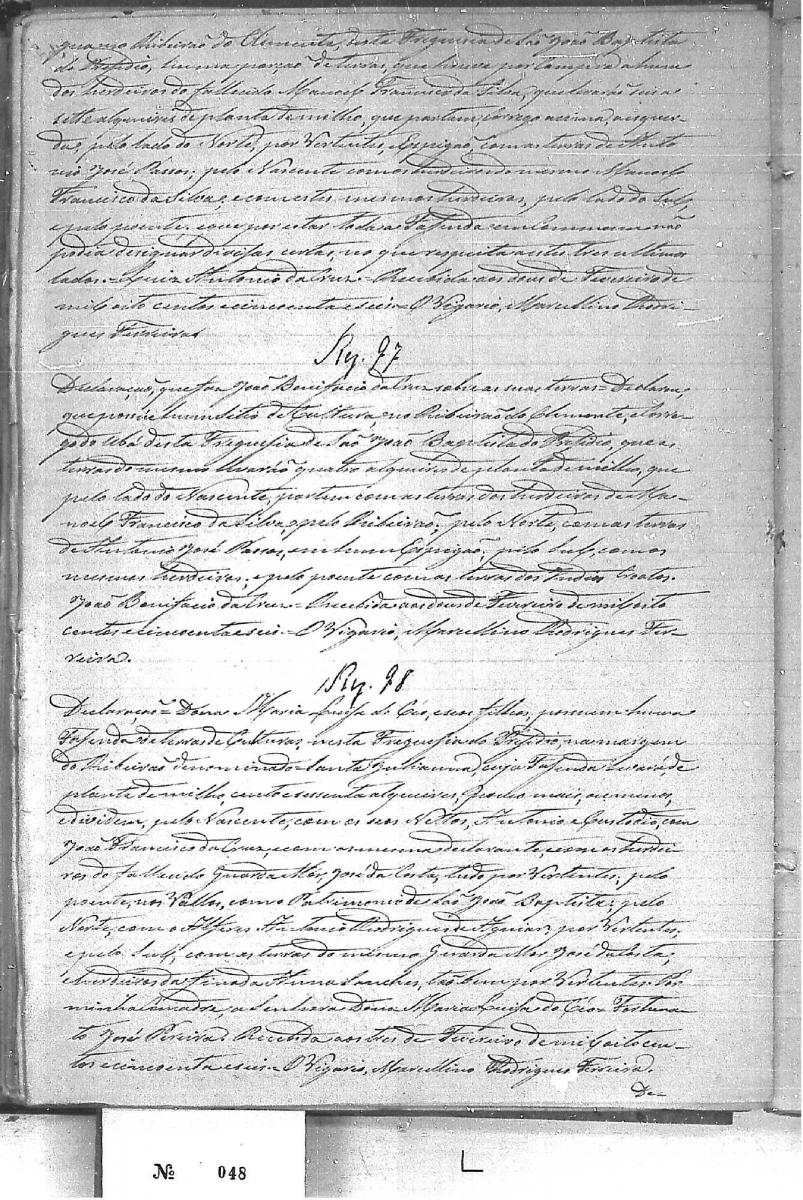 queno Ribeirão do Clemente, desta Freguesia de São João Baptista
do Presidio, huma porção de terras, que houve por compra a hum
dos herdeiros do fallecido Manoel Francisco da Silva, que levarão seis a
sette alqueires de planta de milho, que partem, corrego acima, a esquer-
da, pelo lado do Norte, por Vertentes, e Espigão, com as terras de Anto
nio José Passos; pelo Nascente com os herdeiros do mesmo Manoel
Francisco da Silva; e com estes mesmos herdeiros, pelo lado do Sul,
e pelo poente. e que por estar toda a Fasenda em Commum não
podia designar divisas certas, no que respeita a estes tres ultimos
lados.= Luiz Antonio da Cruz.= Recebida aos dous de Fevereiro de
mil oito centos e cincoenta e seis.= O Vigario, Marcellino Rodri-
gues Ferreira.
Reg. 97
Declaração, que faz João Bonifacio da Cruz sobre as suas terras= Declara,
que possúe hum sitio de Cultura, no Ribeirão do Clemente, e Corre-
go do Ubá desta Freguesia de São João Baptista do Presidio, que as
terras do mesmo levarão quatro alqueires de planta de milho, que
pelo lado do Nascente, partem com as terras dos herdeiros de Ma-
noel Francisco da Silva, e pelo Ribeirão; pelo Norte, com as terras
de Antonio José Passos, em hum Espigão; pelo Sul, com os
mesmos herdeiros; e pelo poente com as terras dos Indios Croatos.
João Bonifacio da Cruz= Recebida aos dous de Fevereiro de mil oito
centos e cincoenta e seis.= O Vigario, Marcellino Rodrigues Fer-
reira.
Reg. 98
Declaração= Dona Maria Luisa do Céo, e seos filhos, possuem huma
Fasenda de terras de Culturas, nesta Freguesia do Presidio, na margem
do Ribeirão denominado= Santa Jullianna, cuja Fasenda levará de
planta de milho, cento e sessenta alqueires, pouco mais, ou menos,
e dividem, pelo Nascente, com os seos Nettos, Antonio e Custodio, com
João Francisco da Cruz, e com a mesma declarante, e com os herdei
ros do fallecido Guarda Mór, José da Costa, tudo por Vertentes; pelo
poente, nos Vallos, com o Patrimonio de São João Baptista; pelo
Norte, com o Alferes Antonio Rodrigues de Aguiar, por Vertentes;
e pelo Sul, com as terras do mesmo Guarda Mór José da Costa,
e herdeiros da finada Anna Sanches, tão bem por Vertentes. Por
minha Comadre, a Senhora Dona Maria Luisa do Céo= Fortuna-
to José Pereira. Recebida aos tres de Fevereiro de mil oito cen-
tos e cincoenta e seis.= O Vigario, Marcellino Rodrigues Ferreira.
De-
Nº 048